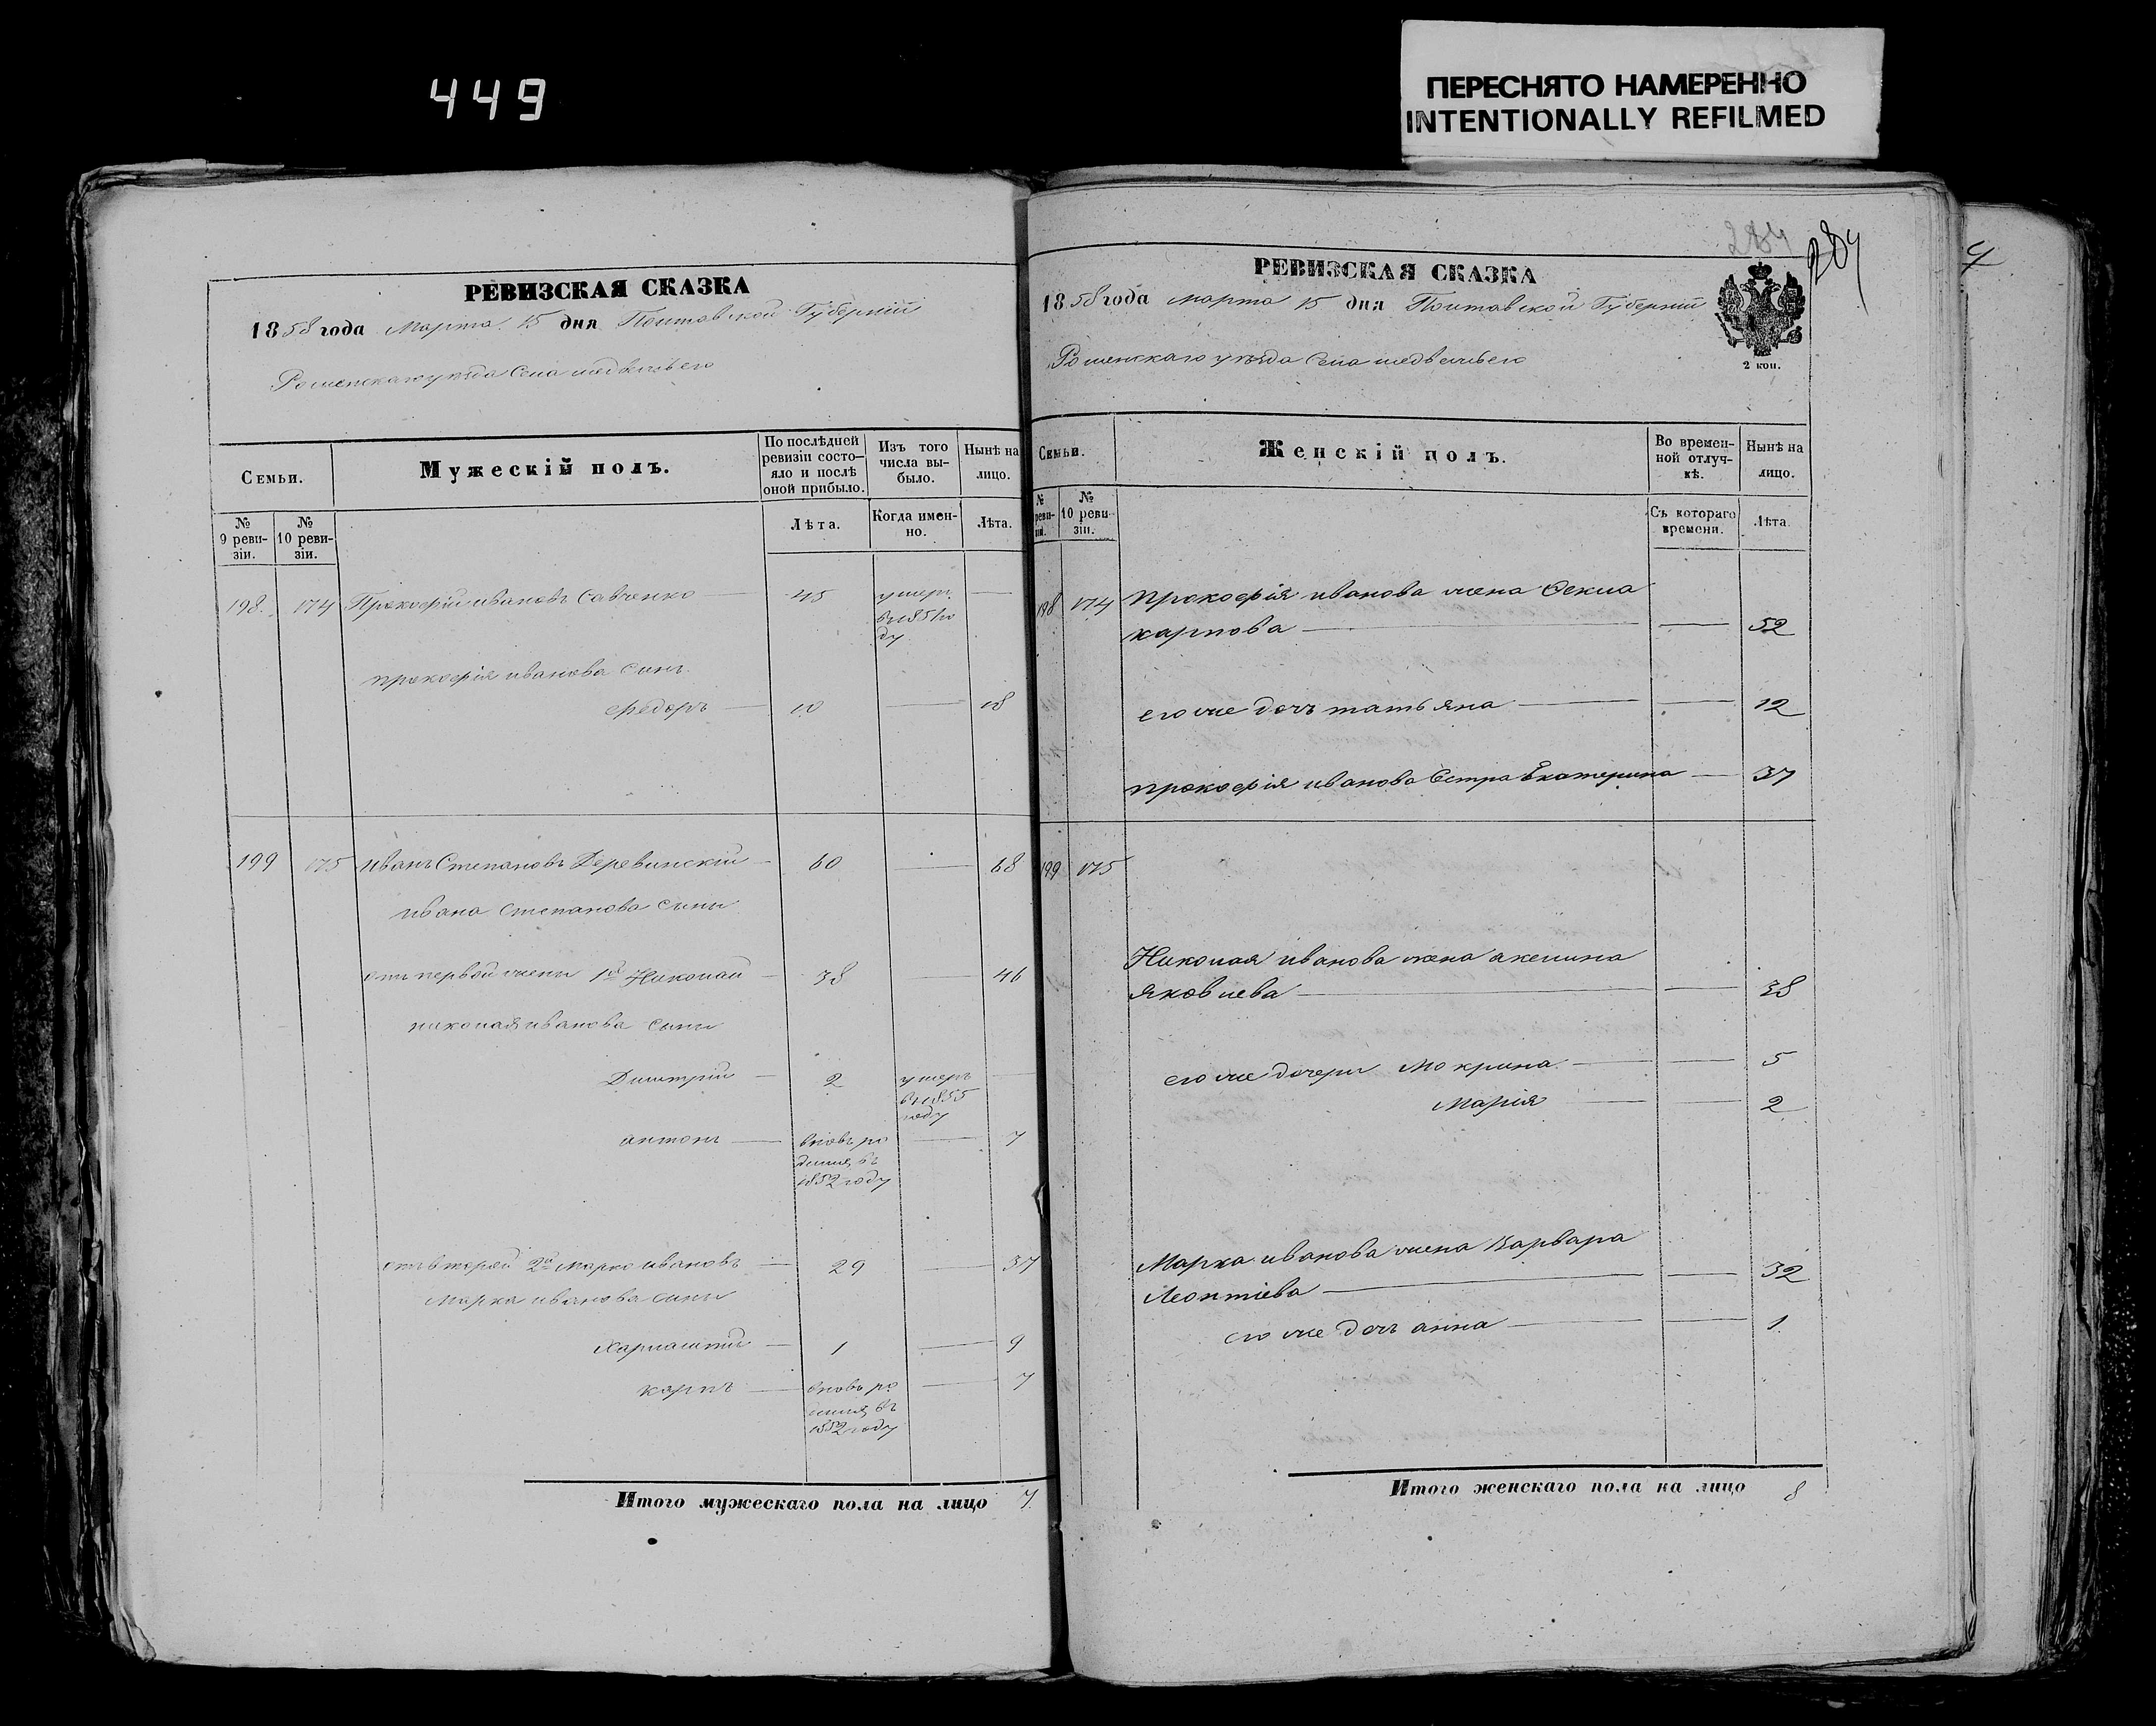 449
ПЕРЕСНЯТО НАМЕРЕННО
INTENTIONALLY REFILMED
РЕВИЗСКАЯ СКАЗКА
1858 года Марта 15 дня Полтавской Губерніи
Роменскаго уѣзда Села медвежьего
Семьи.
Мужескій полъ.
По послѣдней ревизіи состо-яло и послѣ оной прибыло.
Изъ того числа вы-было.
Нынѣ на лицо.
№ 9 реви-зіи.
№ 10 реви-зіи.
Лѣта.
Когда имен-но.
Лѣта.
198. 174 Прокофій ивановъ Савченко — 45 умеръ —
в 1851 го
ду
прокофія иванова Сынъ
федоръ — 10 — 18
199 175 иванъ Степановъ Деревинскій — 60 — 68
ивана Степанова Сыны
отъ первой жены 1й Николай — 38 — 46
николая иванова Сыны
Димитрій — 2 умеръ —
въ 1855
году
антонъ — вновь ро — 7
дился въ
1852 году
отъ второй 2й Марко ивановъ — 29 — 37
Марка иванова сыны
Харлампий — 1 — 9
карпъ — вновь ро — 7
дился въ
1852 году
Итого мужескаго пола на лицо 7
284
284
РЕВИЗСКАЯ СКАЗКА
1858 года марта 15 дня Полтавской Губерніи
2 коп.
Роменскаго уѣзда Села медвежьего
Семьи.
Женскій полъ.
Во времен-ной отлуч-кѣ.
Нынѣ на лицо.
№ реви-зіи.
№ 10 реви-зіи.
Съ котораго времени.
Лѣта.
198 174 прокофія иванова жена Фекла
карпова — — 52
его же дочь татьяна — — 12
прокофія иванова Сестра Екатерина — 37
199 175
Николая иванова жена акелина
Яковлева — — 38
его же дочери Мокрина — — 5
Марія — — 2
Марка иванова жена Варвара
Леонтіева — — 32
его же дочь анна — — 1
Итого женскаго пола на лицо 8